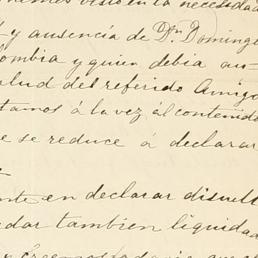 visto en la necesidad
y ausencia de Dn. Domingo
ombia y quien debia au-
alud del referido Amigo
tamos á la vez al contenido
e se reduce á declarar
nte en declarar disuelt
edar tambien liquidad